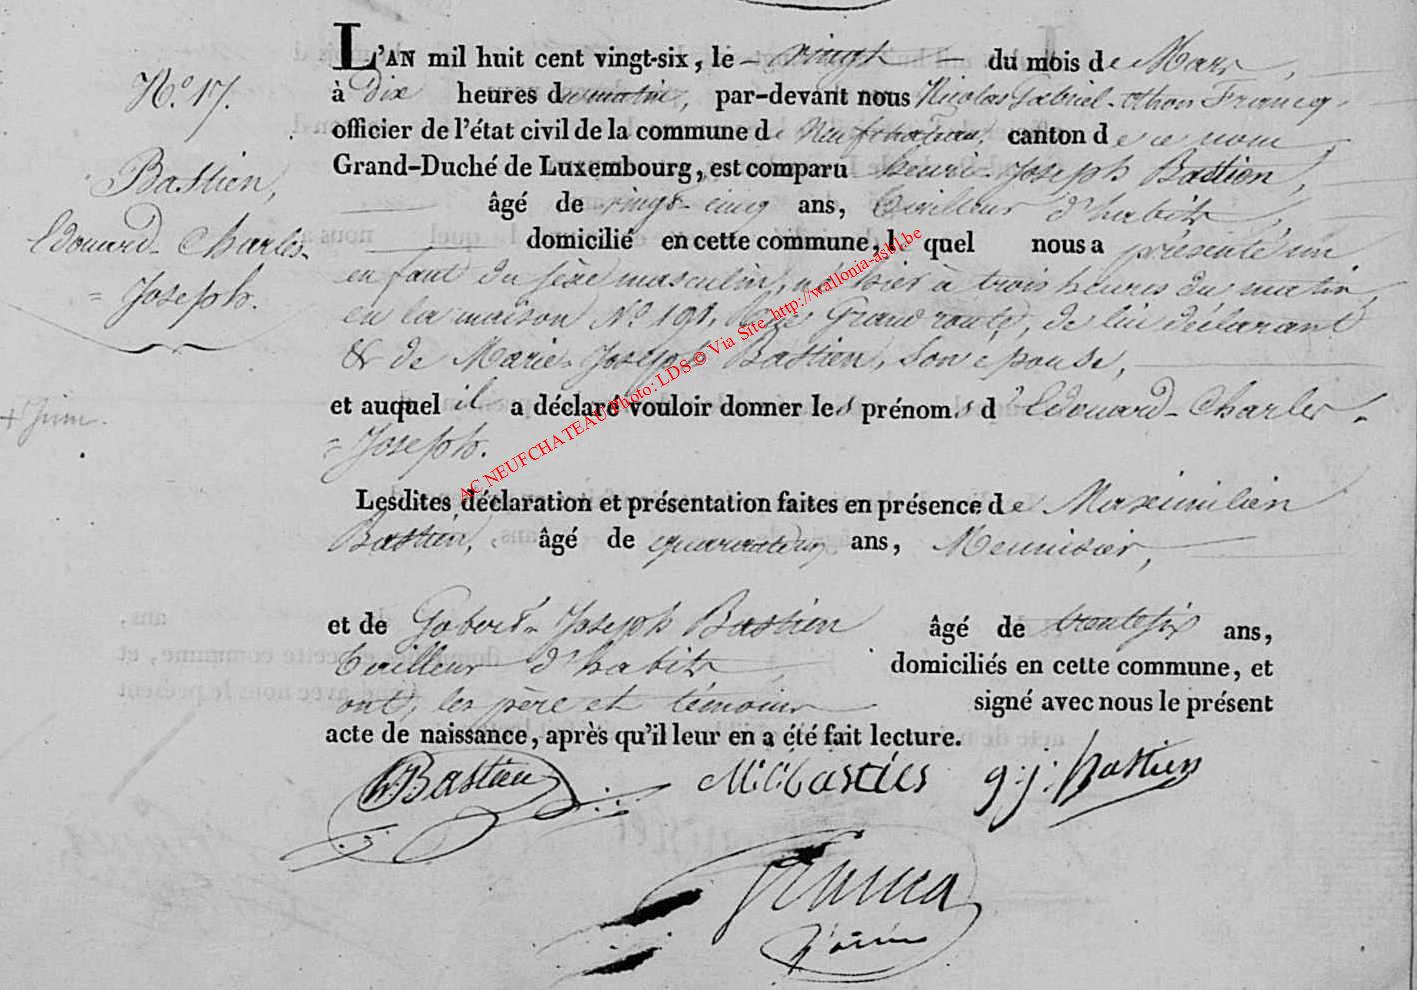 L'AN mil huit cent vingt-six, le vingt du mois de Mars,
N.o 17.
à Dix heures du matin, par-devant nous Nicolas Gabriel-othon Francq,
officier de l'état civil de la commune de Neufchateau, canton de ce nom,
Grand-Duché de Luxembourg, est comparu henri-Joseph Bastien,
Bastien,
âgé de vingt-cinq ans, tailleur d'habits,
Edouard-Charles-
domicilié en cette commune, lequel nous a présenté un
enfant du sèxe masculin, né hier à trois heures du matin,
= Joseph.
en la maison N.o 191, Grand route, de lui déclarant
& de Marie-Joseph Bastien, son épouse,
et auquel il a déclaré vouloir donner les prénoms d'Edouard-Charles-
+ Juin.
= Joseph.
Lesdites déclaration et présentation faites en présence de Maximilien
Bastien, âgé de ans, Meunisier,
et de Gobert-Joseph Bastien âgé de trentesix ans,
tailleur d'habits, domiciliés en cette commune, et
ont, les père et témoins signé avec nous le présent
acte de naissance, après qu'il leur en a été fait lecture.
hBastien M: Bastien g:j: bastien
Francq
AC NEUFCHATEAU Photo: LDS © Via Site http://wallonia-asbl.be